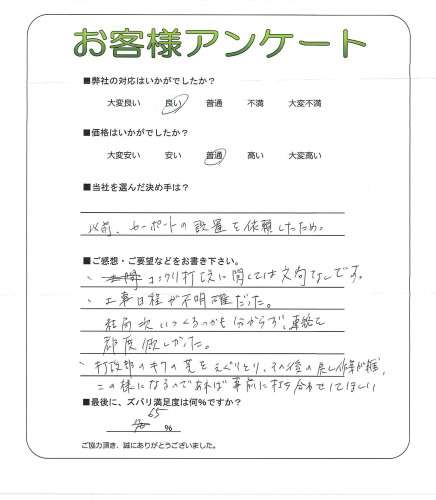 お客様アンケート
■弊社の対応はいかがでしたか？
大変良い 良い 普通 不満 大変不満
■価格はいかがでしたか？
大変安い 安い 普通 高い 大変高い
■当社を選んだ決め手は？
以前、カーポートの設置を依頼したため。
■ご感想・ご要望などをお書き下さい。
・コンクリ打設に関しては文句なしです。
・工事日程が不明確だった。
結局次いつくるのかも分からず、車輌を
都度倣しかった。
・打設部のキワの芝をえぐりとり、その後の戻し作業が雑、
この様になるのであれば事前に打ち合わせしてほしい
■最後に、ズバリ満足度は何％ですか？
65
%
ご協力頂き、誠にありがとうございました。